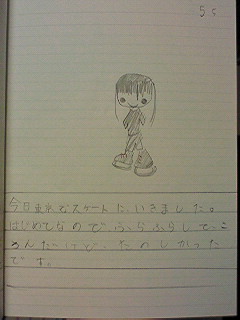 今日東京でスケートに、いきました。
はじめてなので ふらふらして、こ
ろんだけど、たのしかった
です。